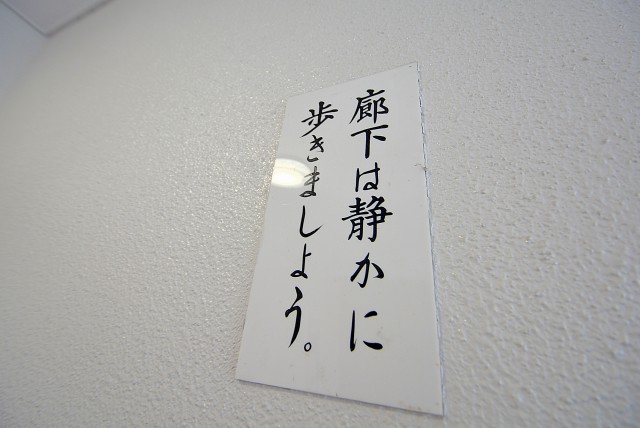 廊下は静かに
歩きましょう。